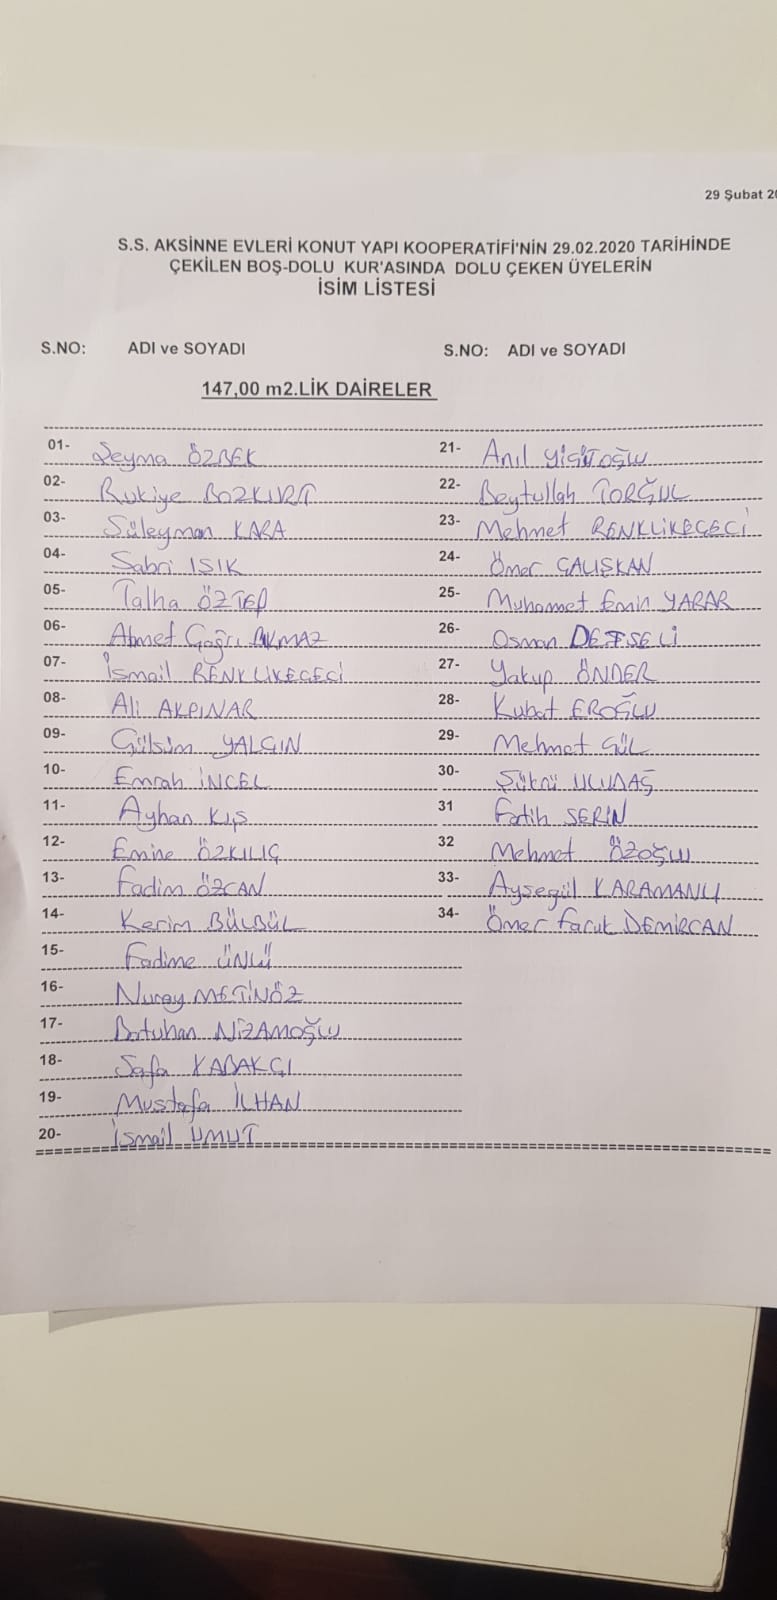 29 Şubat 20
S.S. AKSİNNE EVLERİ KONUT YAPI KOOPERATİFİ'NİN 29.02.2020 TARİHİNDE
ÇEKİLEN BOŞ-DOLU KUR'ASINDA DOLU ÇEKEN ÜYELERİN
İSİM LİSTESİ
S.NO: ADI ve SOYADI S.NO: ADI ve SOYADI
147,00 m2.LİK DAİRELER
01- Şeyma ÖZBEK
02- Rukiye BOZKURT
03- Süleyman KARA
04- Sabri IŞIK
05- Talha ÖZTEP
06- Ahmet Çağrı AKMAZ
07- İsmail RENKLİKEÇECİ
08- Ali AKPINAR
09- Gülsüm YALÇIN
10- Emrah İNCEL
11- Ayhan KIŞ
12- Emine ÖZKILIÇ
13- Fadim ÖZCAN
14- Kerim BÜLBÜL
15- Fadime ÜNLÜ
16- Nuray METİNÖZ
17- Batuhan NİZAMOĞLU
18- Safa KABAKÇI
19- Mustafa İLHAN
20- İsmail UMUT
21- Anıl YİĞİTOĞLU
22- Beytullah TORĞUL
23- Mehmet RENKLİKEÇECİ
24- Ömer ÇALIŞKAN
25- Muhammet Emin YARAR
26- Osman
27- Yakup ÖNDER
28- Kubat EROĞLU
29- Mehmet GÜL
30- Şükrü ULUDAĞ
31 Fatih SERİN
32 Mehmet ÖZOĞLU
33- Ayşegül KARAMANLI
34- Ömer Faruk DEMİRCAN